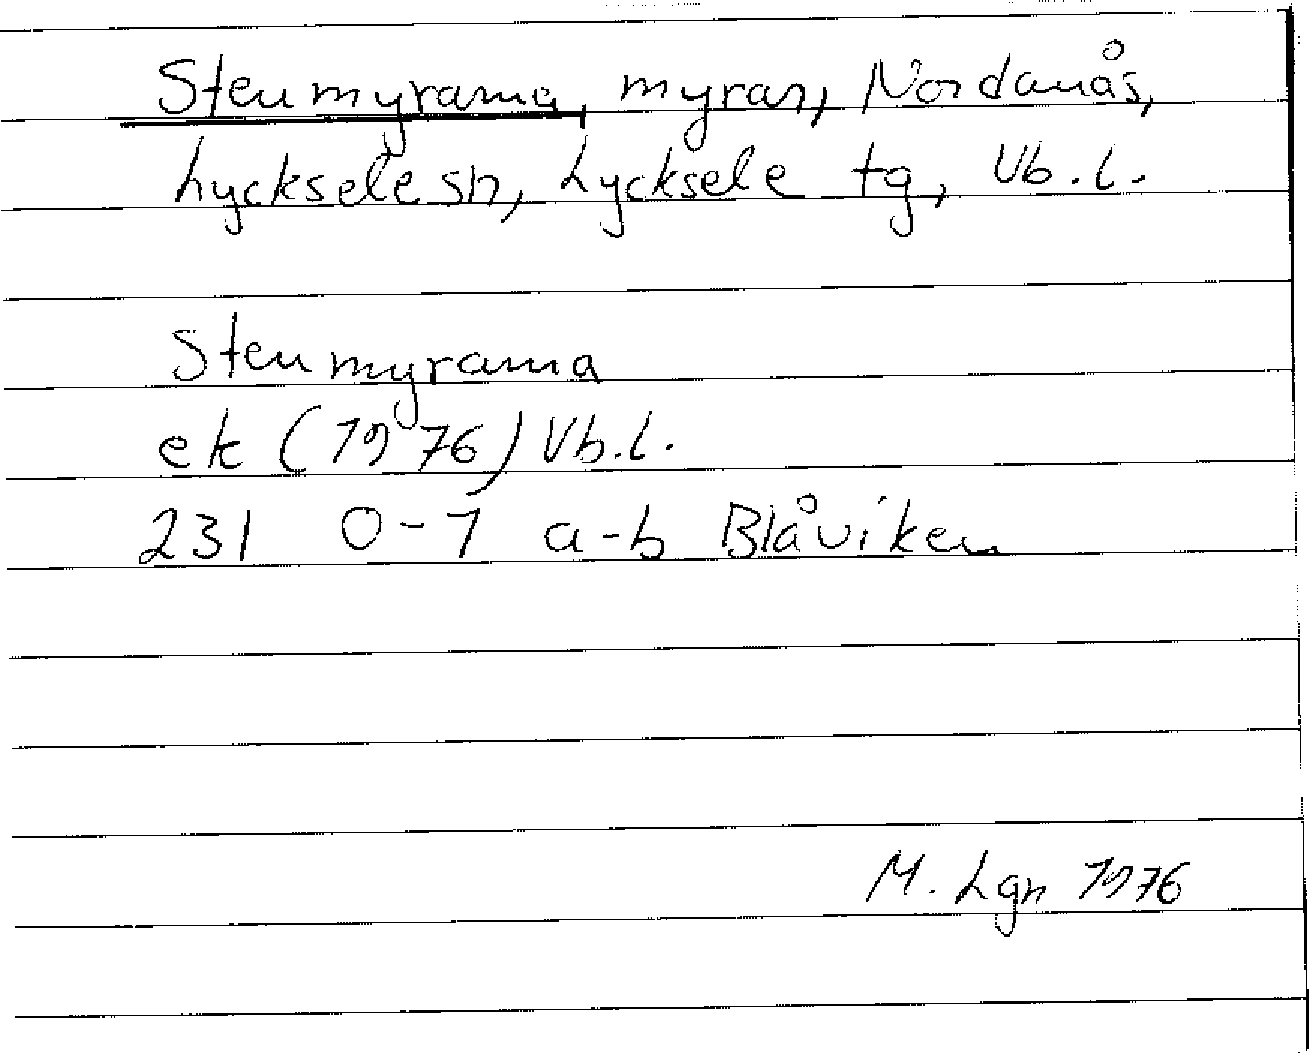 Stenmyrarna, myrar, Nordanås,
Lycksele sn, Lycksele tg, Vb.l.
Stenmyrarna
ek (1976) Vb.l.
231 0-1 a-b Blåviken
M. Lgn 1976